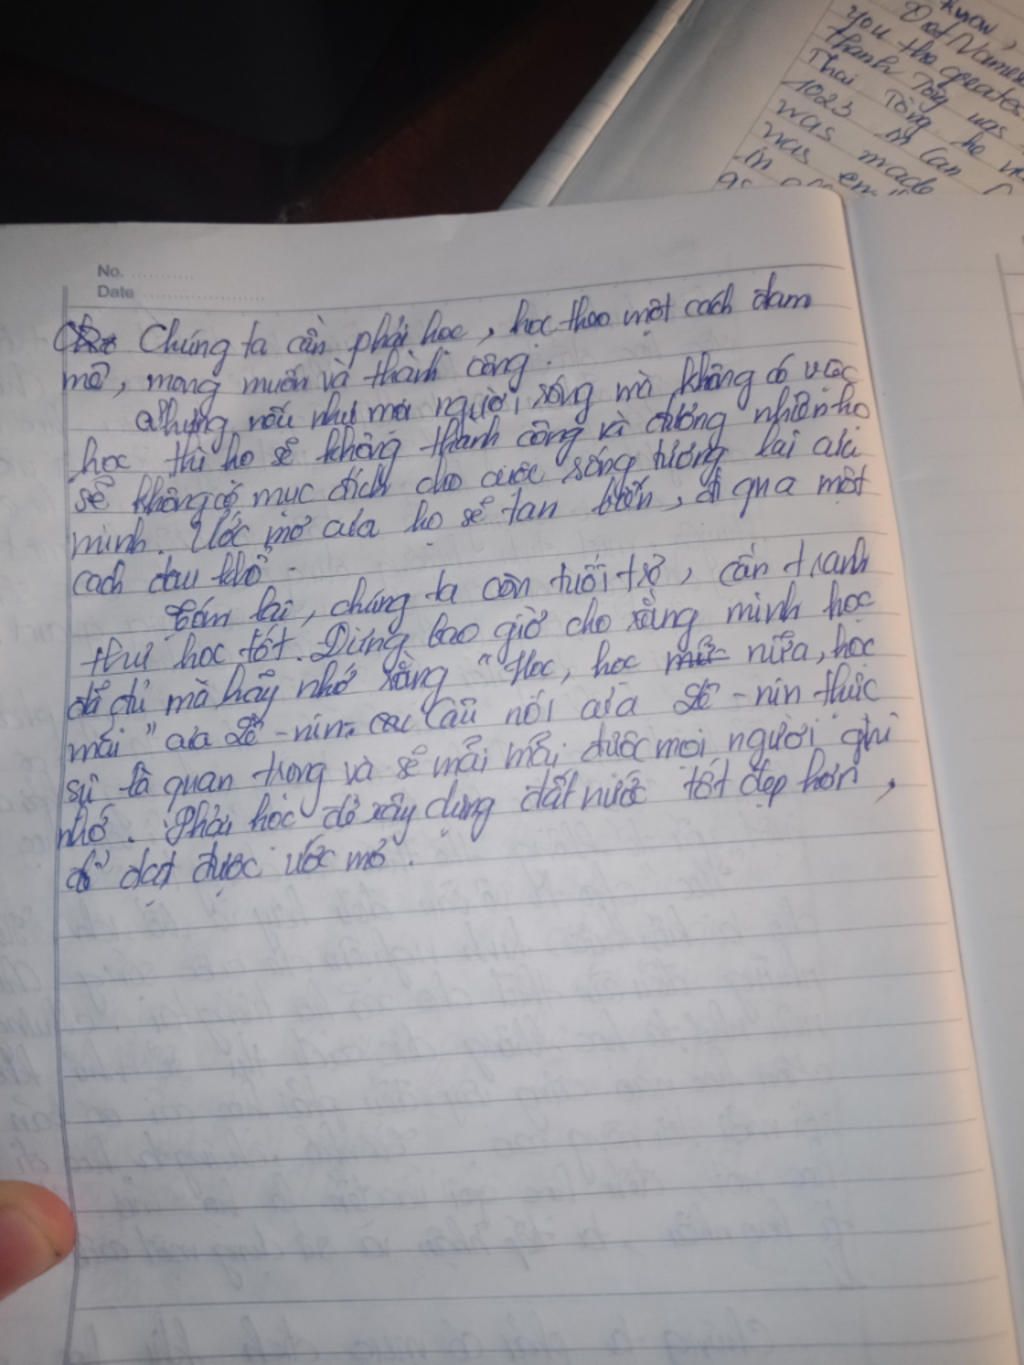 know,
Dot Names
you the greates
thanh Tông was
Thai Tông he
1023 in Can
was made
was em
in
No.
Date
Chúng ta cần phải học, học theo một cách đam
mê, mong muốn và thành công.
Nhưng nếu như mọi người sống mà không có việc
học thì họ sẽ không thành công và đương nhiên họ
sẽ không có mục đích cho cuộc sống tương lai của
mình. Ước mơ của họ sẽ tan biến, đi qua một
cách đau khổ.
Tóm lại, chúng ta còn tuổi trẻ, cần tranh
thư học tốt. Đừng bao giờ cho rằng mình học
đã đủ mà hãy nhớ rằng "Học, học nữa, học
mãi" của Lê-nin. Câu nói của Lê-nin thực
sự là quan trọng và sẽ mãi mãi được mọi người ghi
nhớ. Phải học để xây dựng đất nước tốt đẹp hơn,
để đạt được ước mơ.